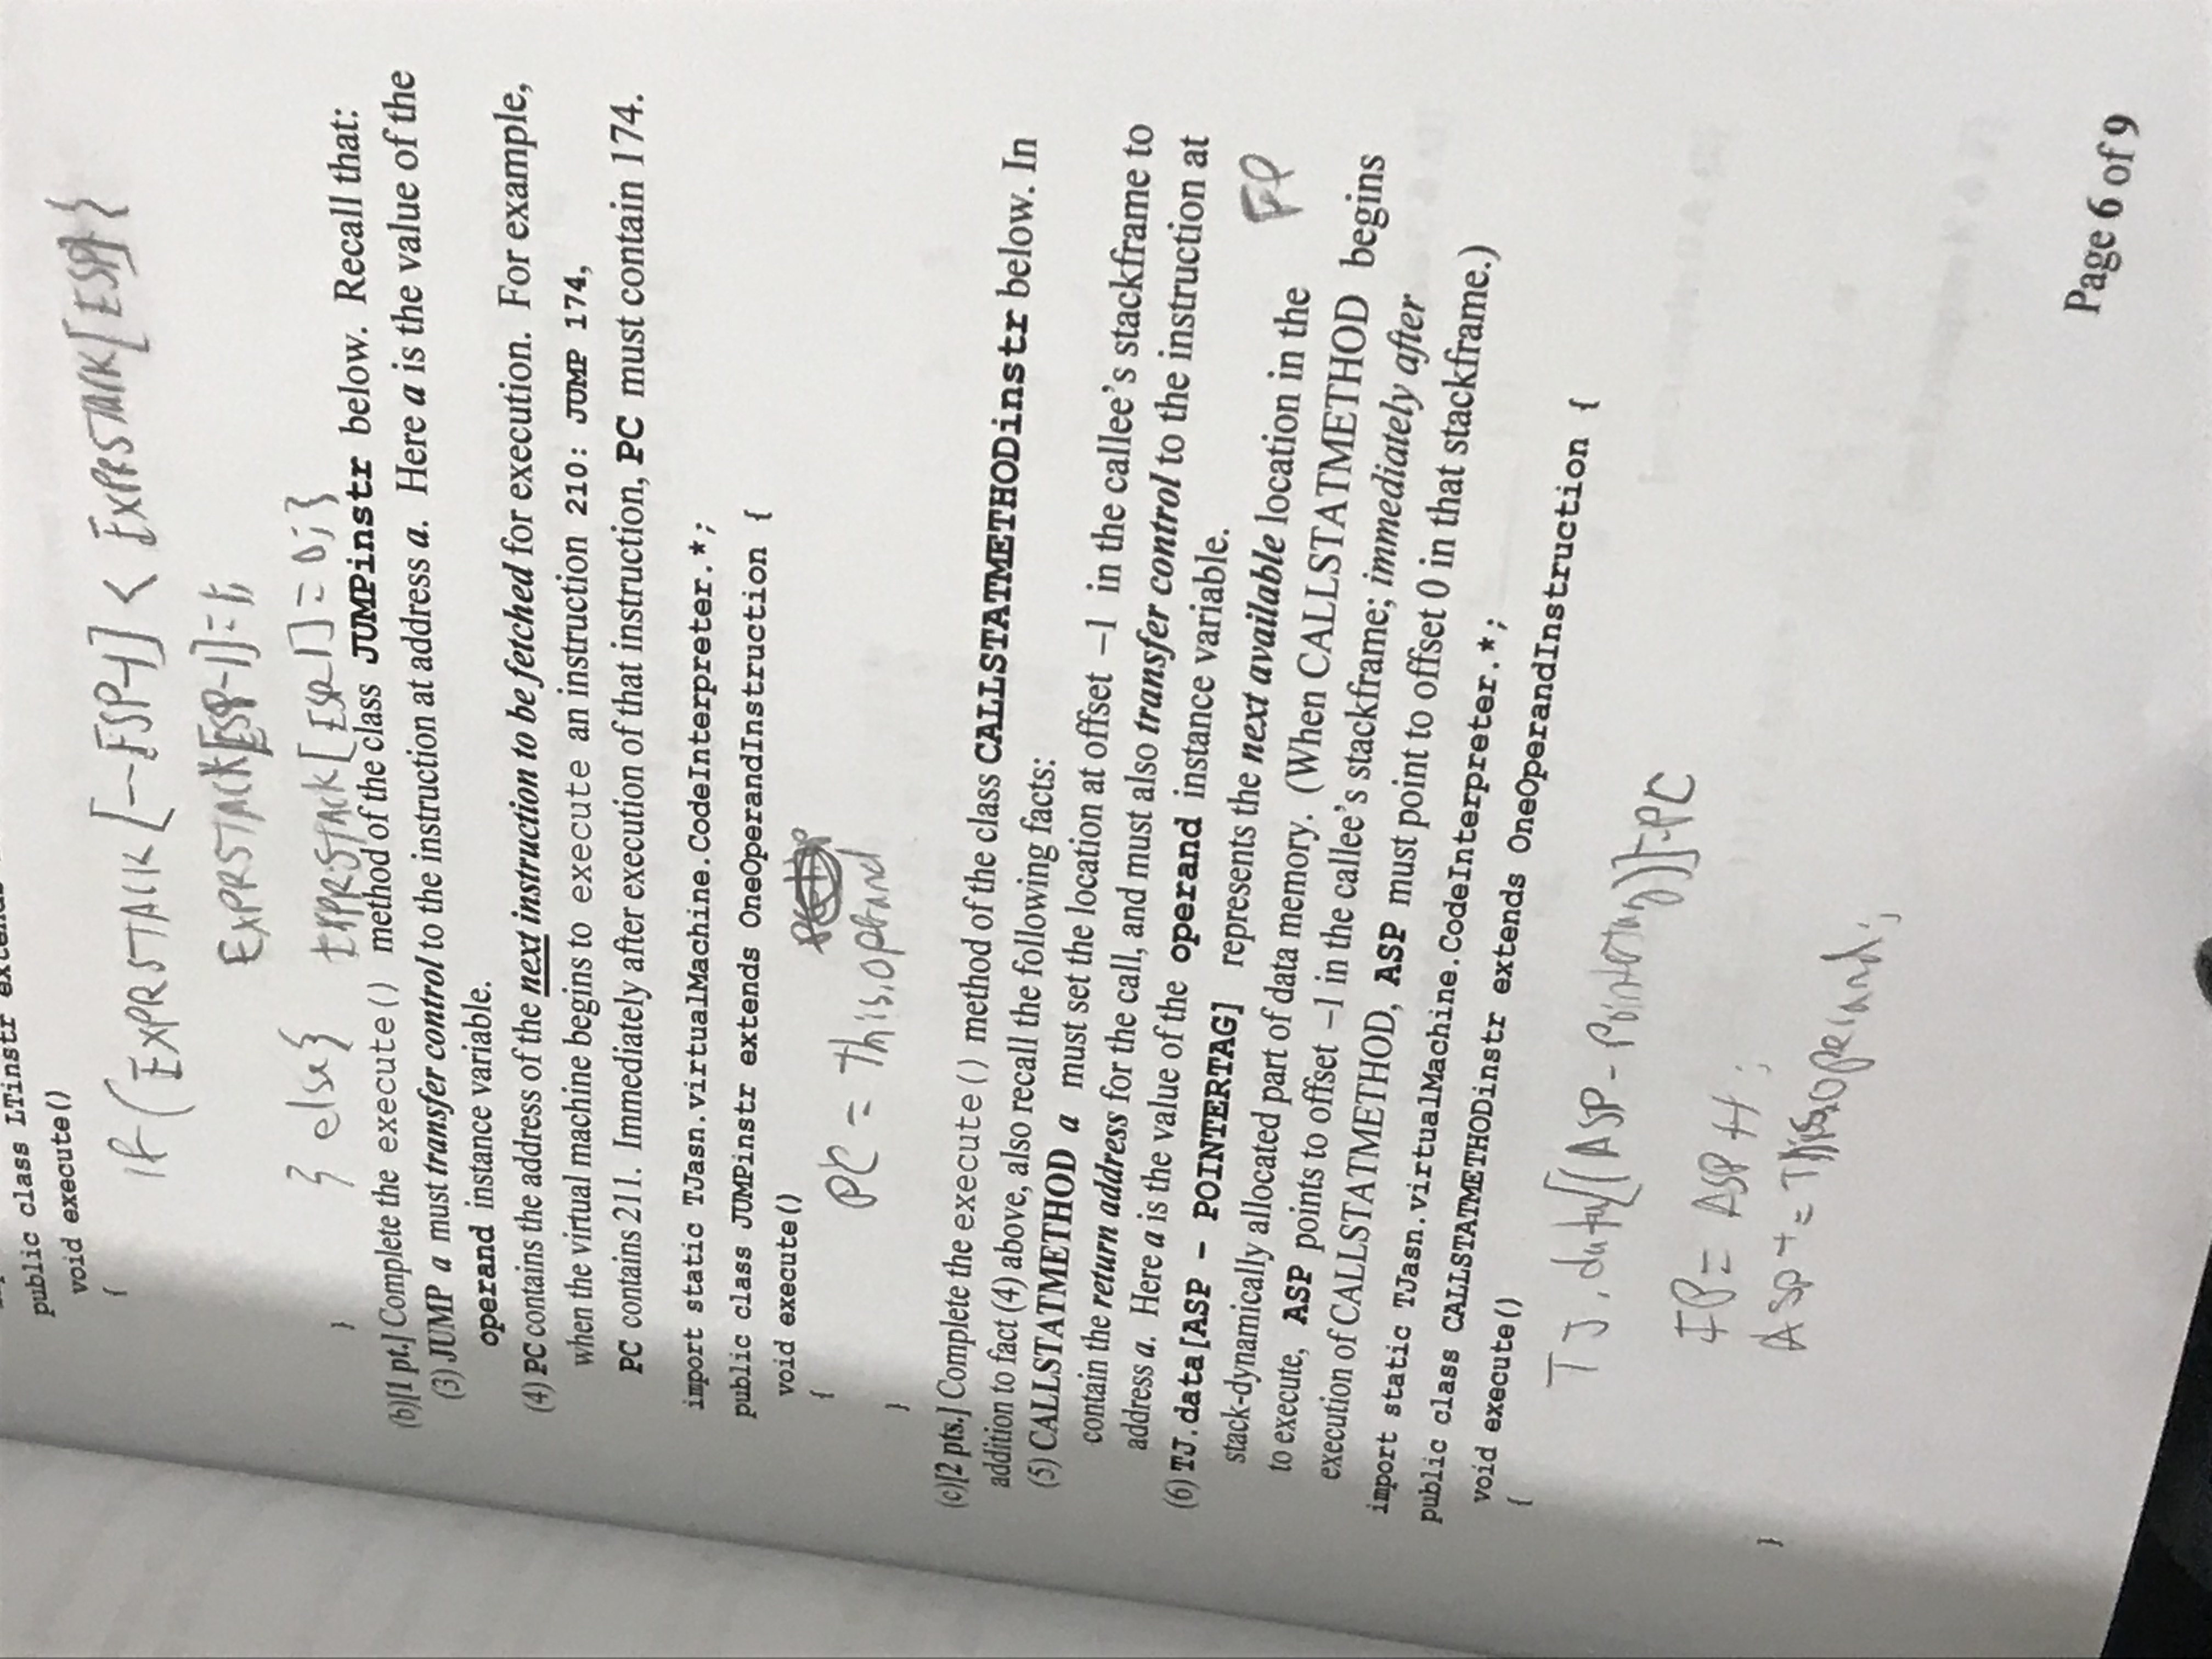 public class LTinstr extends
void execute()
{
if (EXPRSTACK[--ESP-1] < EXPRSTACK[ESP]) {
EXPRSTACK[ESP-1]=1;
} else { EXPRSTACK[ESP-1]=0;}
}
(b)[1 pt.] Complete the execute() method of the class JUMPinstr below. Recall that:
(3) JUMP a must transfer control to the instruction at address a. Here a is the value of the
operand instance variable.
(4) PC contains the address of the next instruction to be fetched for execution. For example,
when the virtual machine begins to execute an instruction 210: JUMP 174,
PC contains 211. Immediately after execution of that instruction, PC must contain 174.
import static TJasn.virtualMachine.CodeInterpreter.*;
public class JUMPinstr extends OneOperandInstruction {
void execute()
{
PC = This.operand
}
(c)[2 pts.] Complete the execute() method of the class CALLSTATMETHODinstr below. In
addition to fact (4) above, also recall the following facts:
(5) CALLSTATMETHOD a must set the location at offset –1 in the callee's stackframe to
contain the return address for the call, and must also transfer control to the instruction at
address a. Here a is the value of the operand instance variable.
(6) TJ.data[ASP - POINTERTAG] represents the next available location in the
FP
stack-dynamically allocated part of data memory. (When CALLSTATMETHOD begins
to execute, ASP points to offset –1 in the callee's stackframe; immediately after
execution of CALLSTATMETHOD, ASP must point to offset 0 in that stackframe.)
import static TJasn.virtualMachine.CodeInterpreter.*;
public class CALLSTATMETHODinstr extends OneOperandInstruction {
void execute()
{
TJ.data[(ASP - Pointertag)]=PC
FP= ASP++;
ASP += This.operand;
}
Page 6 of 9